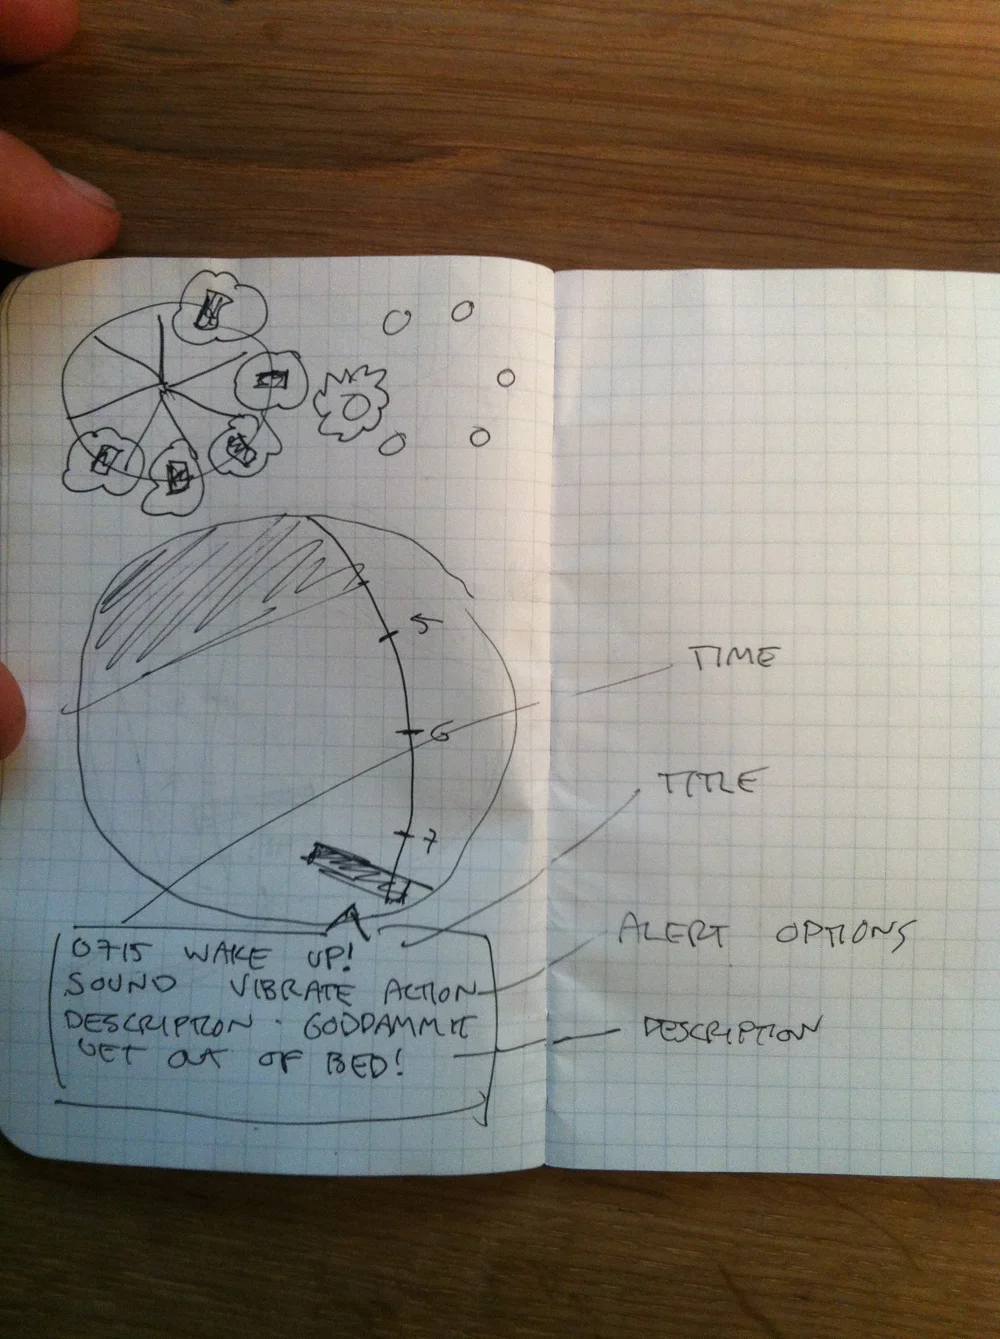 5
6
7
TIME
TITLE
ALERT OPTIONS
DESCRIPTION
0715 WAKE UP!
SOUND VIBRATE ACTION
DESCRIPTION - GODDAMMIT
GET OUT OF BED!